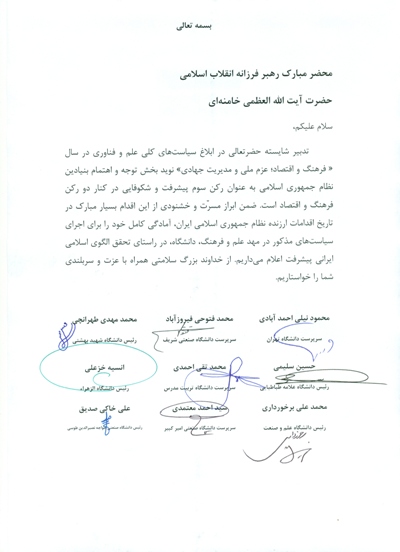 بسمه تعالی
محضر مبارک رهبر فرزانه انقلاب اسلامی
حضرت آیت الله العظمی خامنه‌ای
سلام علیکم،
تدبیر شایسته حضرتعالی در ابلاغ سیاست‌های کلی علم و فناوری در سال
« فرهنگ و اقتصاد؛ عزم ملی و مدیریت جهادی» نوید بخش توجه و اهتمام بنیادین
نظام جمهوری اسلامی به عنوان رکن سوم پیشرفت و شکوفایی در کنار دو رکن
فرهنگ و اقتصاد است. ضمن ابراز مسرّت و خشنودی از این اقدام بسیار مبارک در
تاریخ اقدامات ارزنده نظام جمهوری اسلامی ایران، آمادگی کامل خود را برای اجرای
سیاست‌های مذکور در مهد علم و فرهنگ، دانشگاه، در راستای تحقق الگوی اسلامی
ایرانی پیشرفت اعلام می‌داریم. از خداوند بزرگ سلامتی همراه با عزت و سربلندی
شما را خواستاریم.
محمود نیلی احمد آبادی محمد فتوحی فیروزآباد محمد مهدی طهرانچی
سرپرست دانشگاه تهران سرپرست دانشگاه صنعتی شریف رئیس دانشگاه شهید بهشتی
حسین سلیمی محمد تقی احمدی انسیه خزعلی
رئیس دانشگاه علامه طباطبایی سرپرست دانشگاه تربیت مدرس رئیس دانشگاه الزهراء
محمد علی برخورداری سید احمد معتمدی علی خاکی صدیق
رئیس دانشگاه علم و صنعت سرپرست دانشگاه صنعتی امیر کبیر رئیس دانشگاه صنعتی خواجه نصیرالدین طوسی